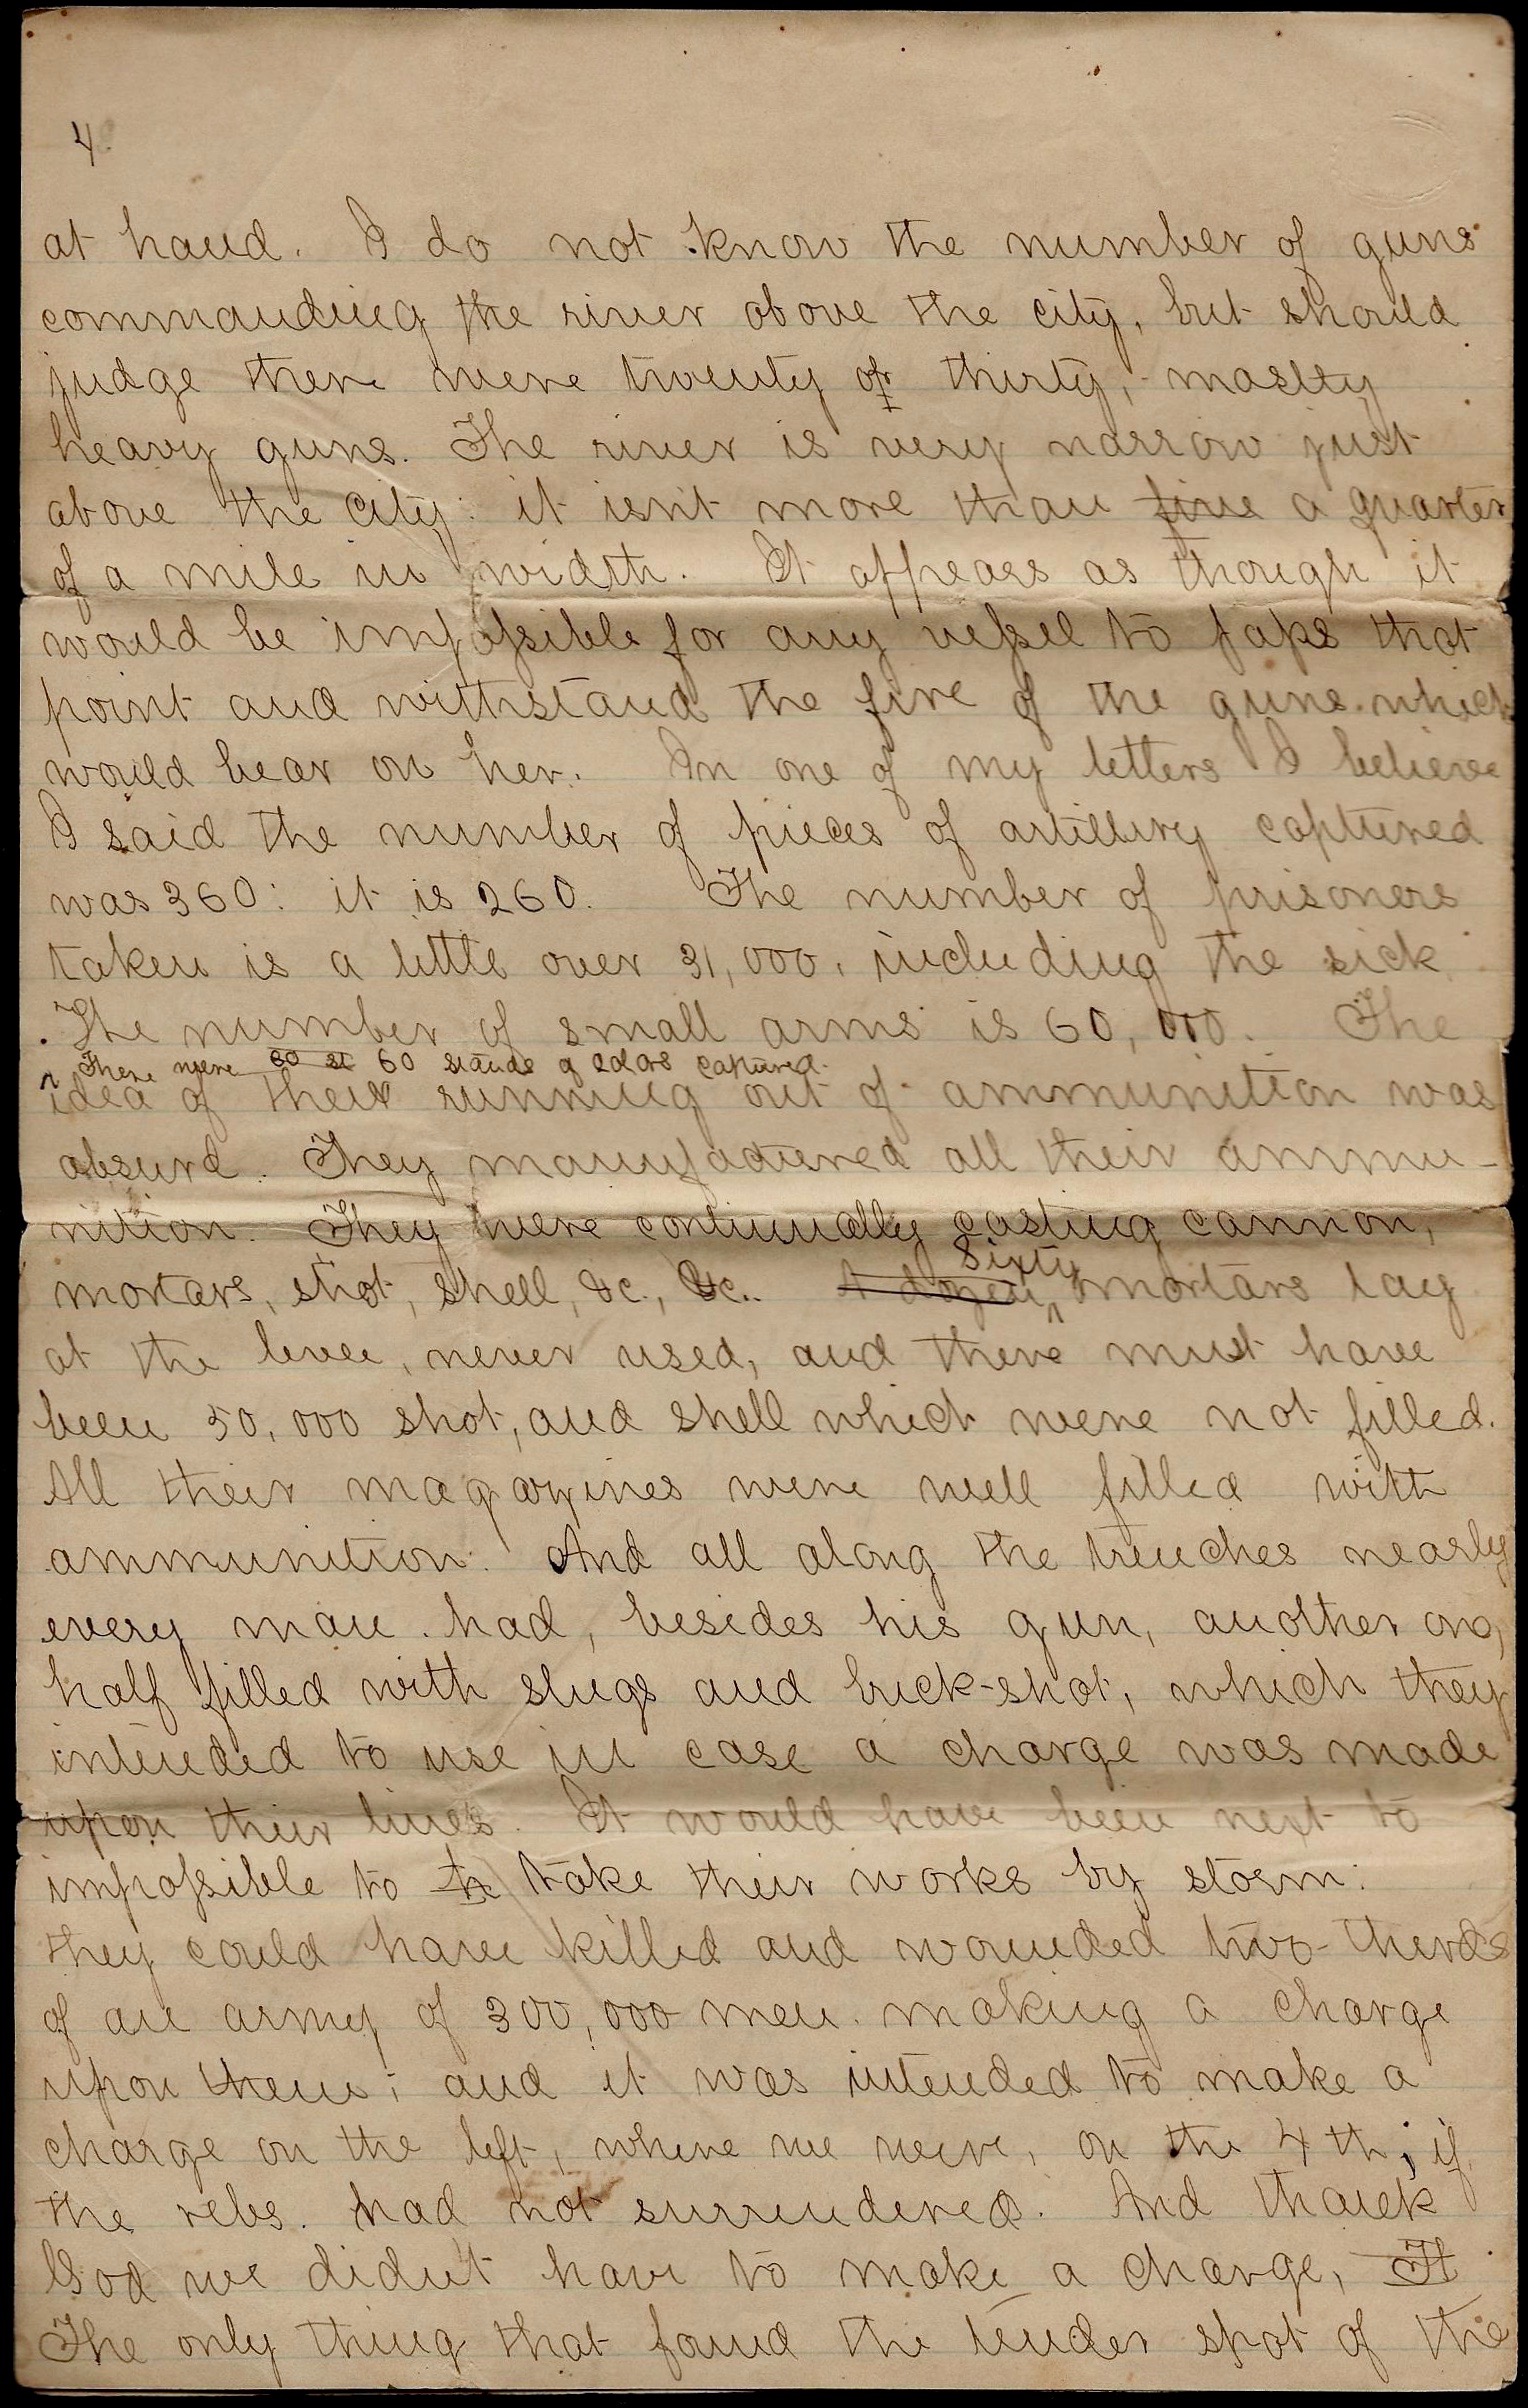 4.
at hand. I do not know the number of guns
commanding the river above the city, but should
judge there were twenty or thirty, mostly
heavy guns. The river is very narrow just
above the city: it isn't more than five a quarter
of a mile in width. It appears as though it
would be impossible for any vessel to pass that
point and withstand the fire of the guns which
would bear on her. In one of my letters I believe
I said the number of pieces of artillery captured
was 360: it is 260. The number of prisoners
taken is a little over 31,000, including the sick.
The number of small arms is 60,000. The
^ There were 60 st 60 stands of colors captured.
idea of their running out of ammunition was
absurd. They manufactured all their ammu-
nition. They were continually casting cannon,
Sixty
mortars, shot, shell, &c., &c.. A dozen ^ mortars lay
at the levee, never used, and there must have
been 50,000 shot, and shell which were not filled.
All their magazines were well filled with
ammunition. And all along the trenches nearly
every man had, besides his gun, another one,
half filled with slugs and buck-shot, which they
intended to use in case a charge was made
upon their lines. It would have been next to
impossible to th take their works by storm:
they could have killed and wounded two-thirds
of an army of 300,000 men making a charge
upon them; and it was intended to make a
charge on the left, where we were, on the 4th, if
the rebs. had not surrendered. And thank
God we didn't have to make a charge, It
The only thing that found the tender spot of the